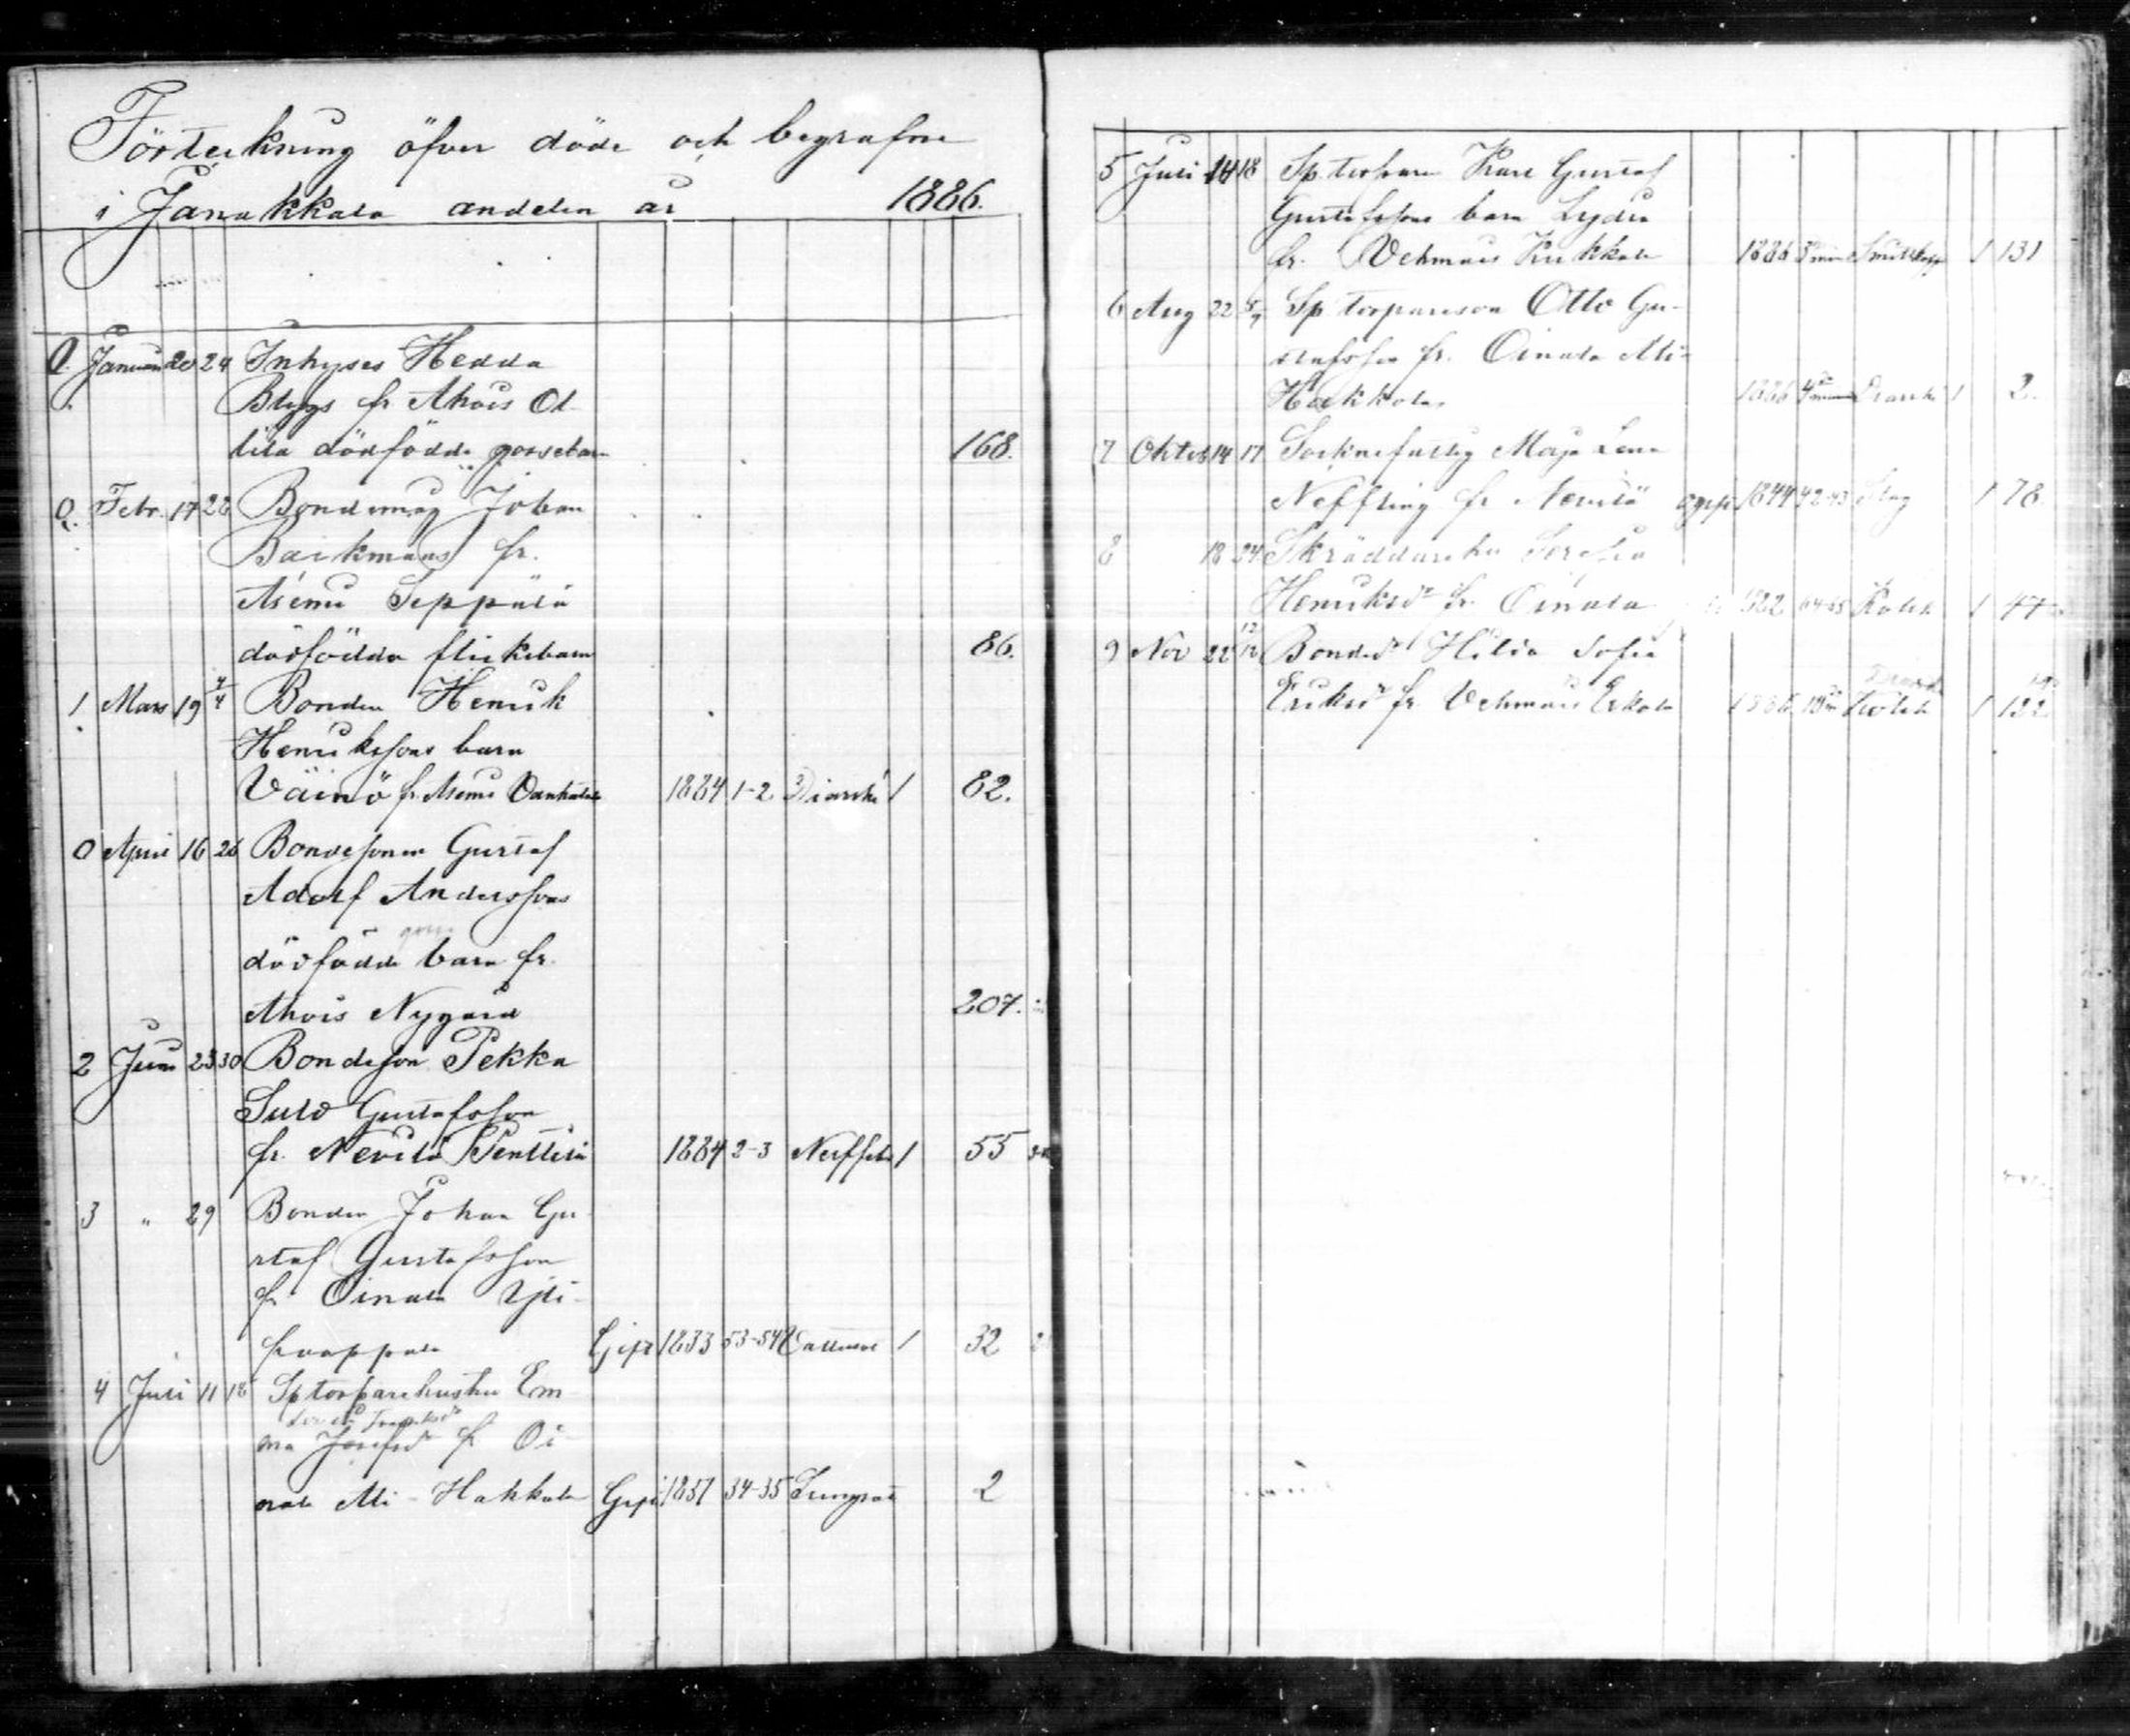 Förteckning öfver döde och begrafne
i Janakkala andelen år 1886.
0. Januari 20 24 Inhyses Hedda
Blygs fr Ahois Ol
lila dödfödda gossebarn 168.
0. Febr. 17 22 Bondemåg Johan
Backmans fr.
Asemi Seppälä
dödfödda flickebarn 86.
1 Mars 19 4/4 Bonden Henrik
Henrikssons barn
Väinö fr. Asemi Vanhala 1884 1-2 Diarrhé 1 82.
0 April 16 26 Bondesonen Gustaf
Adolf Anderssons
dödfödde barn fr.
Ahois Nygård 207.
2 Juni 23 30 Bondeson Pekka
Sulo Gustafsson
fr. Nevilä Penttilä 1884 2-3 1 55
3 " 29 Bonden Johan Gu
staf Gustafsson
fr Oinala Yli-
knappala Gift 1833 53-54 1 32
4 Juli 11 18 Sp torparehustru Em
ma Josefsdr fr Oi
nala Ali-Hakkala Gift 1851 34-35 Lungsot 2
5 Juli 14 18 Sp. torparen Karl Gustaf
Gustafssons barn Lydia
fr. Vehmais Kukkola 1886 1 131
6 Aug 22 5/9 Sp torpareson Otto Gu-
stafsson fr. Oinala Ali-
Hakkola 1886 4 Diarrhé 1 2.
7 Oktob 14 17 Socknefattig Maja Lena
Neffling fr Nevilä ogift 1844 42-43 Slag 1 78
8 18 24 Skräddareh:u Sofia
Henriksdr fr. Oinala 1822 64-65 1 47
9 Nov 22 12/12 Bonded:r Hilda Sofia
Eriksdr fr. Vehmais Erkola 1 132